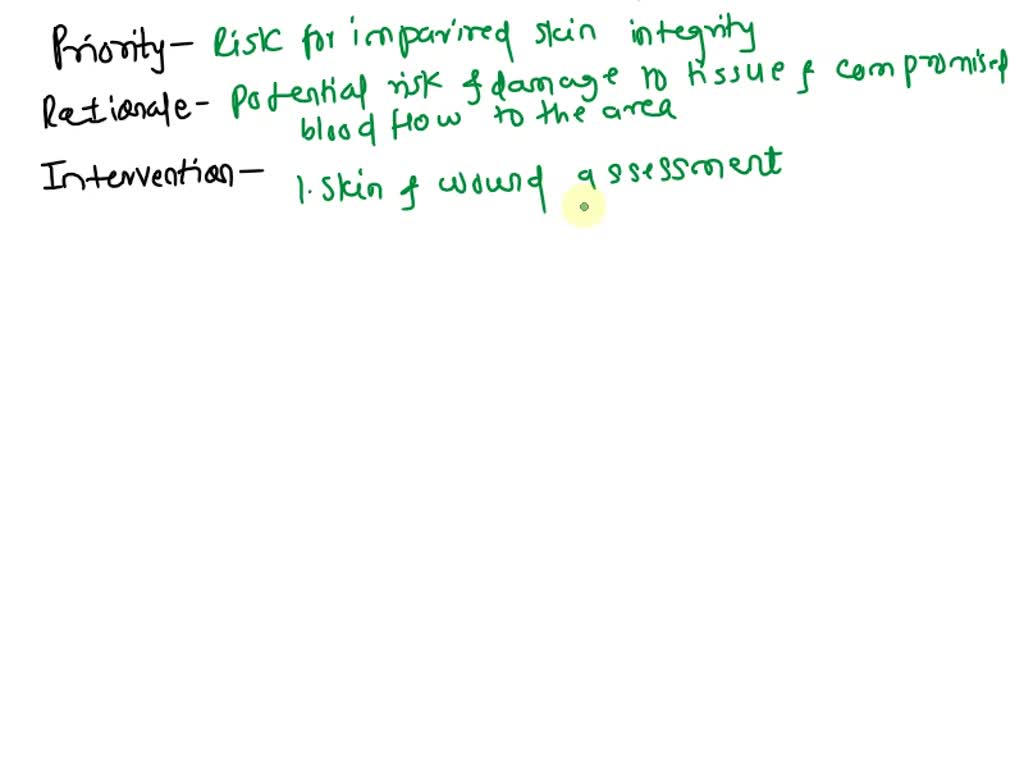 Priority- Risk for impavired skin integrity
Rationale- Potential risk & damage to tissue & compromised
blood flow to the area
Intervention- 1. Skin & wound assessment